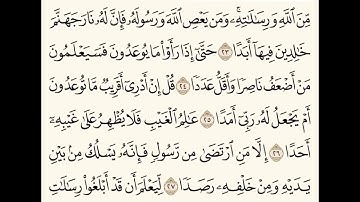 مِّنَ ٱللَّهِ وَرِسَٰلَٰتِهِۦۚ وَمَن يَعۡصِ ٱللَّهَ وَرَسُولَهُۥ فَإِنَّ لَهُۥ نَارَ جَهَنَّمَ
خَٰلِدِينَ فِيهَآ أَبَدًا ٢٣ حَتَّىٰٓ إِذَا رَأَوۡاْ مَا يُوعَدُونَ فَسَيَعۡلَمُونَ
مَنۡ أَضۡعَفُ نَاصِرٗا وَأَقَلُّ عَدَدٗا ٢٤ قُلۡ إِنۡ أَدۡرِيٓ أَقَرِيبٞ مَّا تُوعَدُونَ
أَمۡ يَجۡعَلُ لَهُۥ رَبِّيٓ أَمَدًا ٢٥ عَٰلِمُ ٱلۡغَيۡبِ فَلَا يُظۡهِرُ عَلَىٰ غَيۡبِهِۦٓ
أَحَدًا ٢٦ إِلَّا مَنِ ٱرۡتَضَىٰ مِن رَّسُولٖ فَإِنَّهُۥ يَسۡلُكُ مِنۢ بَيۡنِ
يَدَيۡهِ وَمِنۡ خَلۡفِهِۦ رَصَدٗا ٢٧ لِّيَعۡلَمَ أَن قَدۡ أَبۡلَغُواْ رِسَٰلَٰتِ